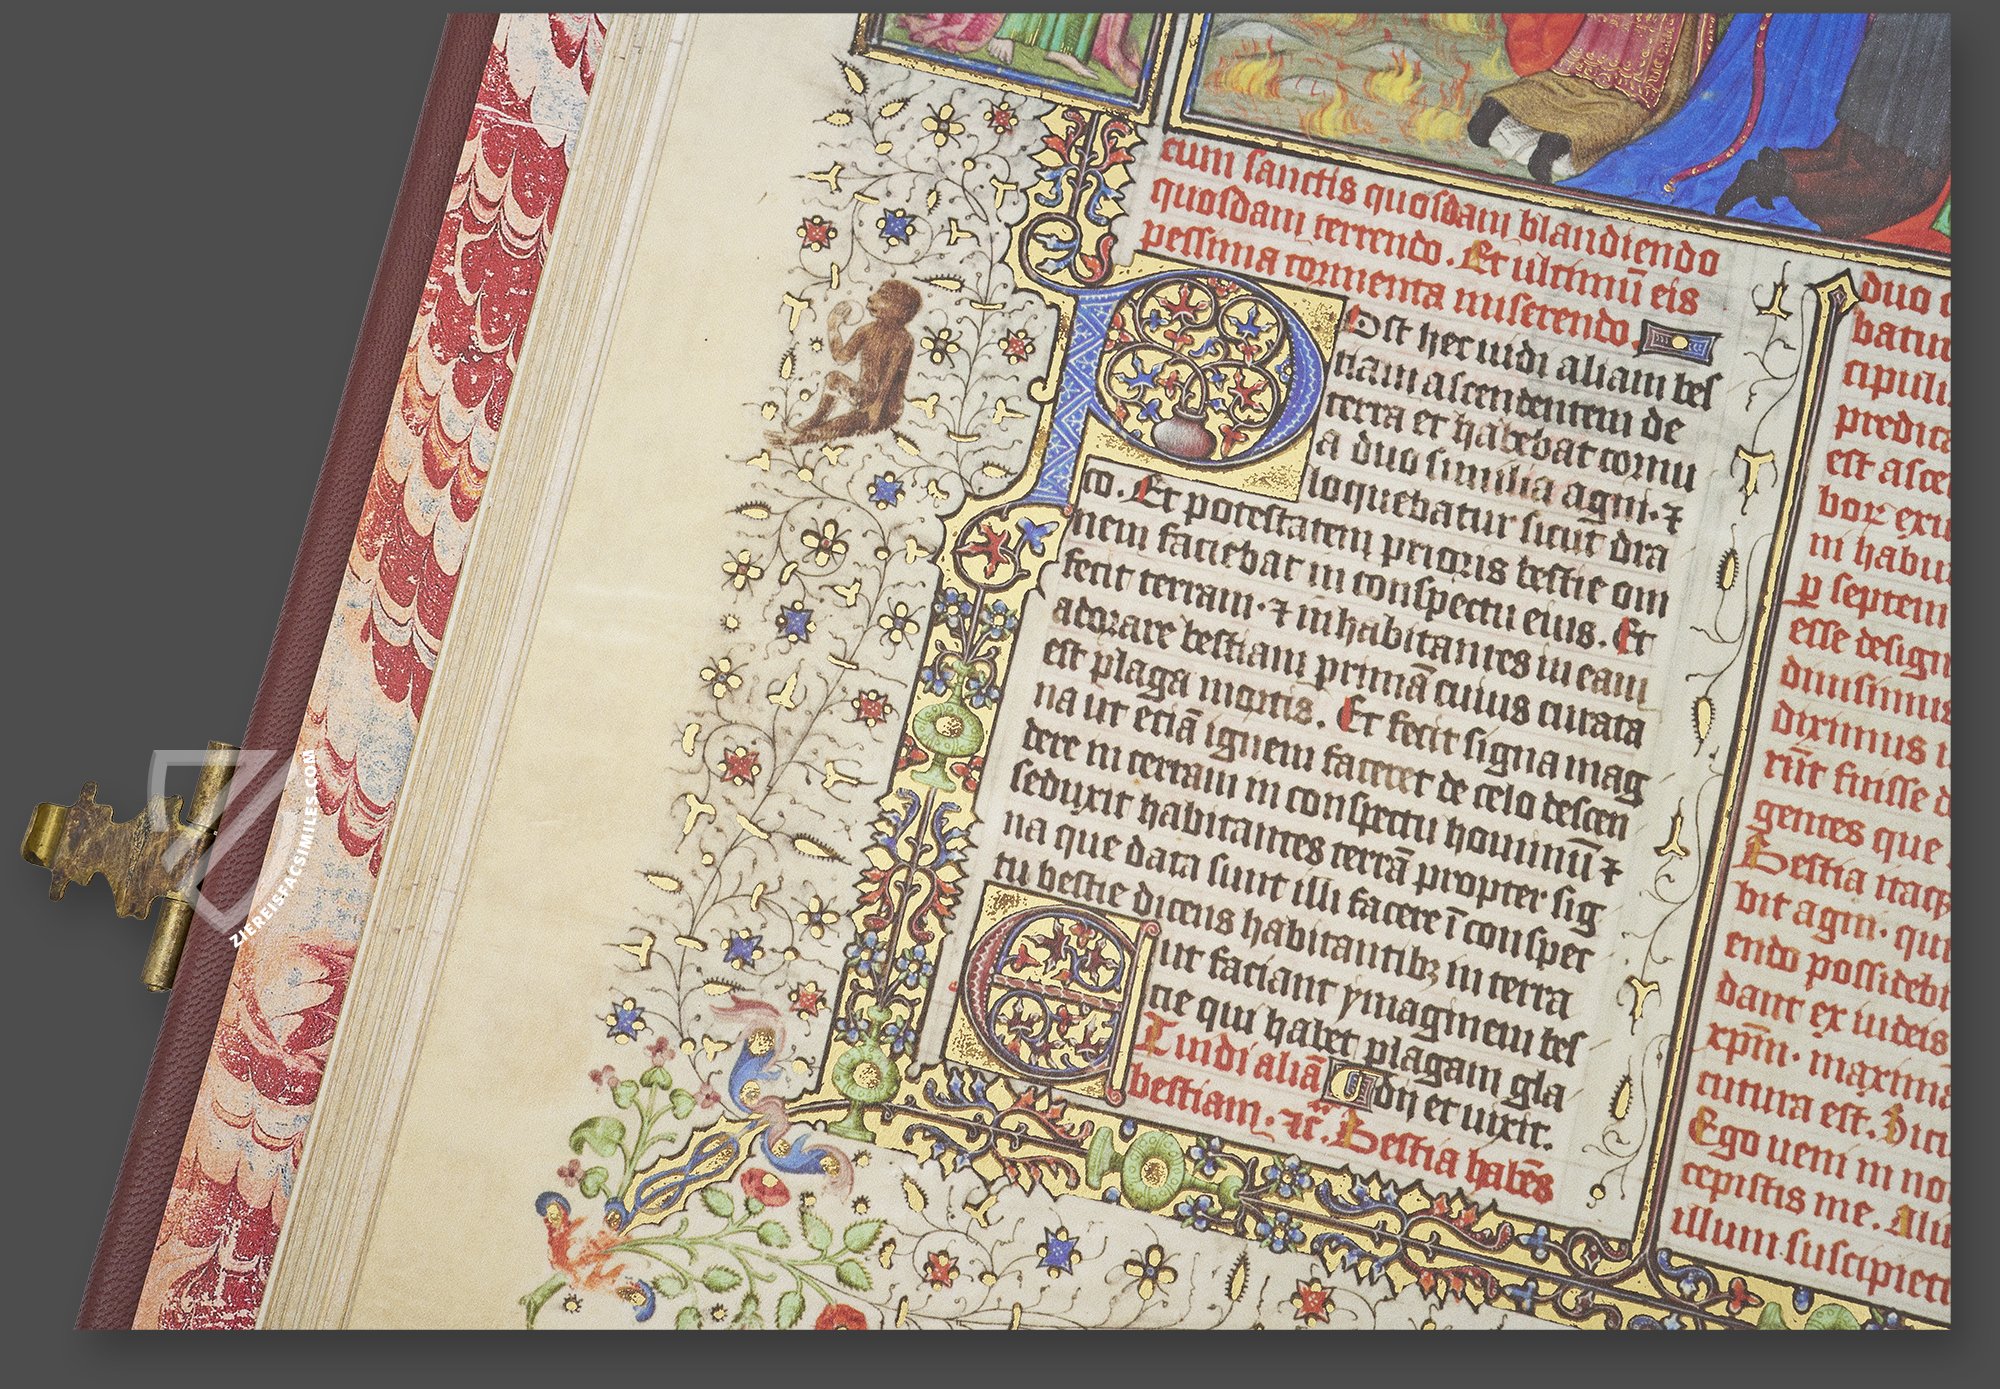 cum sanctis quosdam blandiendo
quosdam terrendo. Et ultimū eis
pessima tormenta miserendo.
Post hec uidi aliam bes
tiam ascendentem de
terra et habebat cornu
a duo similia agni · ⁊
loquebatur sicut dra
co. Et potestatem prioris bestie om
nem faciebat in conspectu eius. Et
fecit terram · ⁊ inhabitantes in eam
adorare bestiam primā cuius curata
est plaga mortis. Et fecit signa mag
na ut etiā ignem faceret de celo descen
dere in terram in conspectu hominū ⁊
seduxit habitantes terrā propter sig
na que data sunt illi facere ī conspec
tu bestie dicens habitantibꝫ in terra
Et ut faciant ymaginem bes
tie qui habet plagam gla
dii et uixit.
Et uidi aliā
bestiam. ⁊c̄. Bestia habēs
duo
batur
cipuli
predica
est asce
bor exu
in habu
ꝑ septem
esse design
diuisimus
diximus i
rūt fuisse d
gentes que
Bestia itaqꝫ
bit agni · qui
endo possidebi
dant ex iudeis
xp̄m · maxima
cutura est. Dici
Ego ueni in no
cepistis me. Aliu
illum suscipieti
ZIEREISFACSIMILES.COM